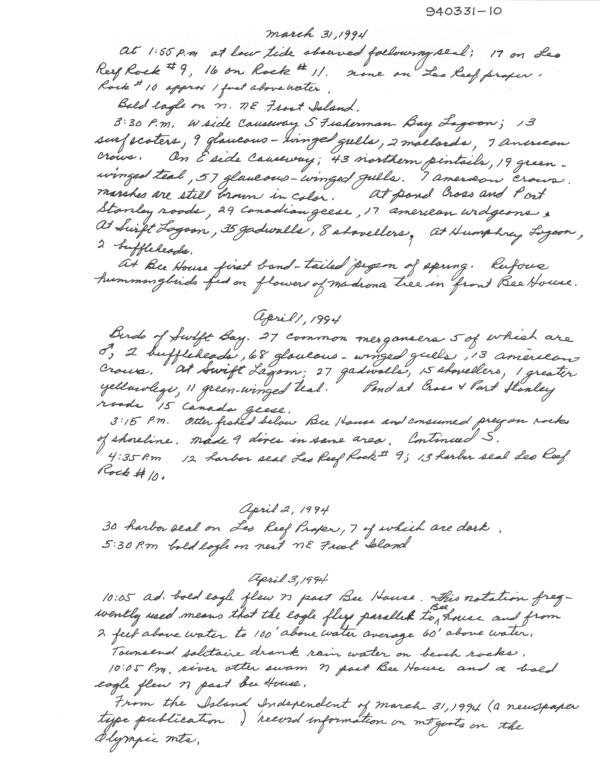 940331-10
March 31, 1994
At 1:55 P.m at low tide observed following seal; 17 on Leo
Reef Rock #9, 16 on Rock #11. none on Leo Reef proper.
Rock #10 approx 1 foot above water.
Bald eagle on n. NE Frost Island.
3:30 P.m. W side Causeway S Fisherman Bay Lagoon; 13
surf scoters, 9 glaucous-winged gulls, 2 mallards, 7 American
crows. On E side Causeway; 43 northern pintails, 19 green-
winged teal, 57 glaucous-winged gulls. 7 american crows.
marshes are still brown in color. At pond Cross and Port
Stanley roads, 29 Canadian geese, 17 american widgeons.
At Swift Lagoon, 35 gadwalls, 8 shovellers. At Humphrey Lagoon,
2 buffleheads.
At Bee House first band-tailed pigeon of spring. Rufous
hummingbirds fed on flowers of madrona tree in front Bee House.
April 1, 1994
Birds of Swift Bay. 27 common mergansers 5 of which are
♂, 2 buffleheads, 68 glaucous-winged gulls, 13 american
crows. At Swift Lagoon; 27 gadwalls, 15 shovellers, 1 greater
yellowlegs, 11 green-winged teal. Pond at Cross & Port Stanley
roads 15 Canada geese.
3:15 P.m. Otter fished below Bee House and consumed prey on rocks
of shoreline. made 9 dives in same area. Continued S.
4:35 P.m 12 harbor seal Leo Reef Rock #9; 13 harbor seal Leo Reef
Rock #10.
April 2, 1994
30 harbor seal on Leo Reef Proper, 7 of which are dark.
5:30 P.m bald eagle on nest NE Frost Island
April 3, 1994
10:05 ad. bald eagle flew n past Bee House. This notation freq-
uently used means that the eagle flys parallel to Bee house and from
2 feet above water to 100' above water average 60' above water.
Townsend solitaire drank rain water on beach rocks.
10:05 P.m. river otter swam n past Bee House and a bald
eagle flew n past Bee House.
From the Island Independent of march 31, 1994 (a newspaper
type publication) record information on mt goats on the
Olympic mts.